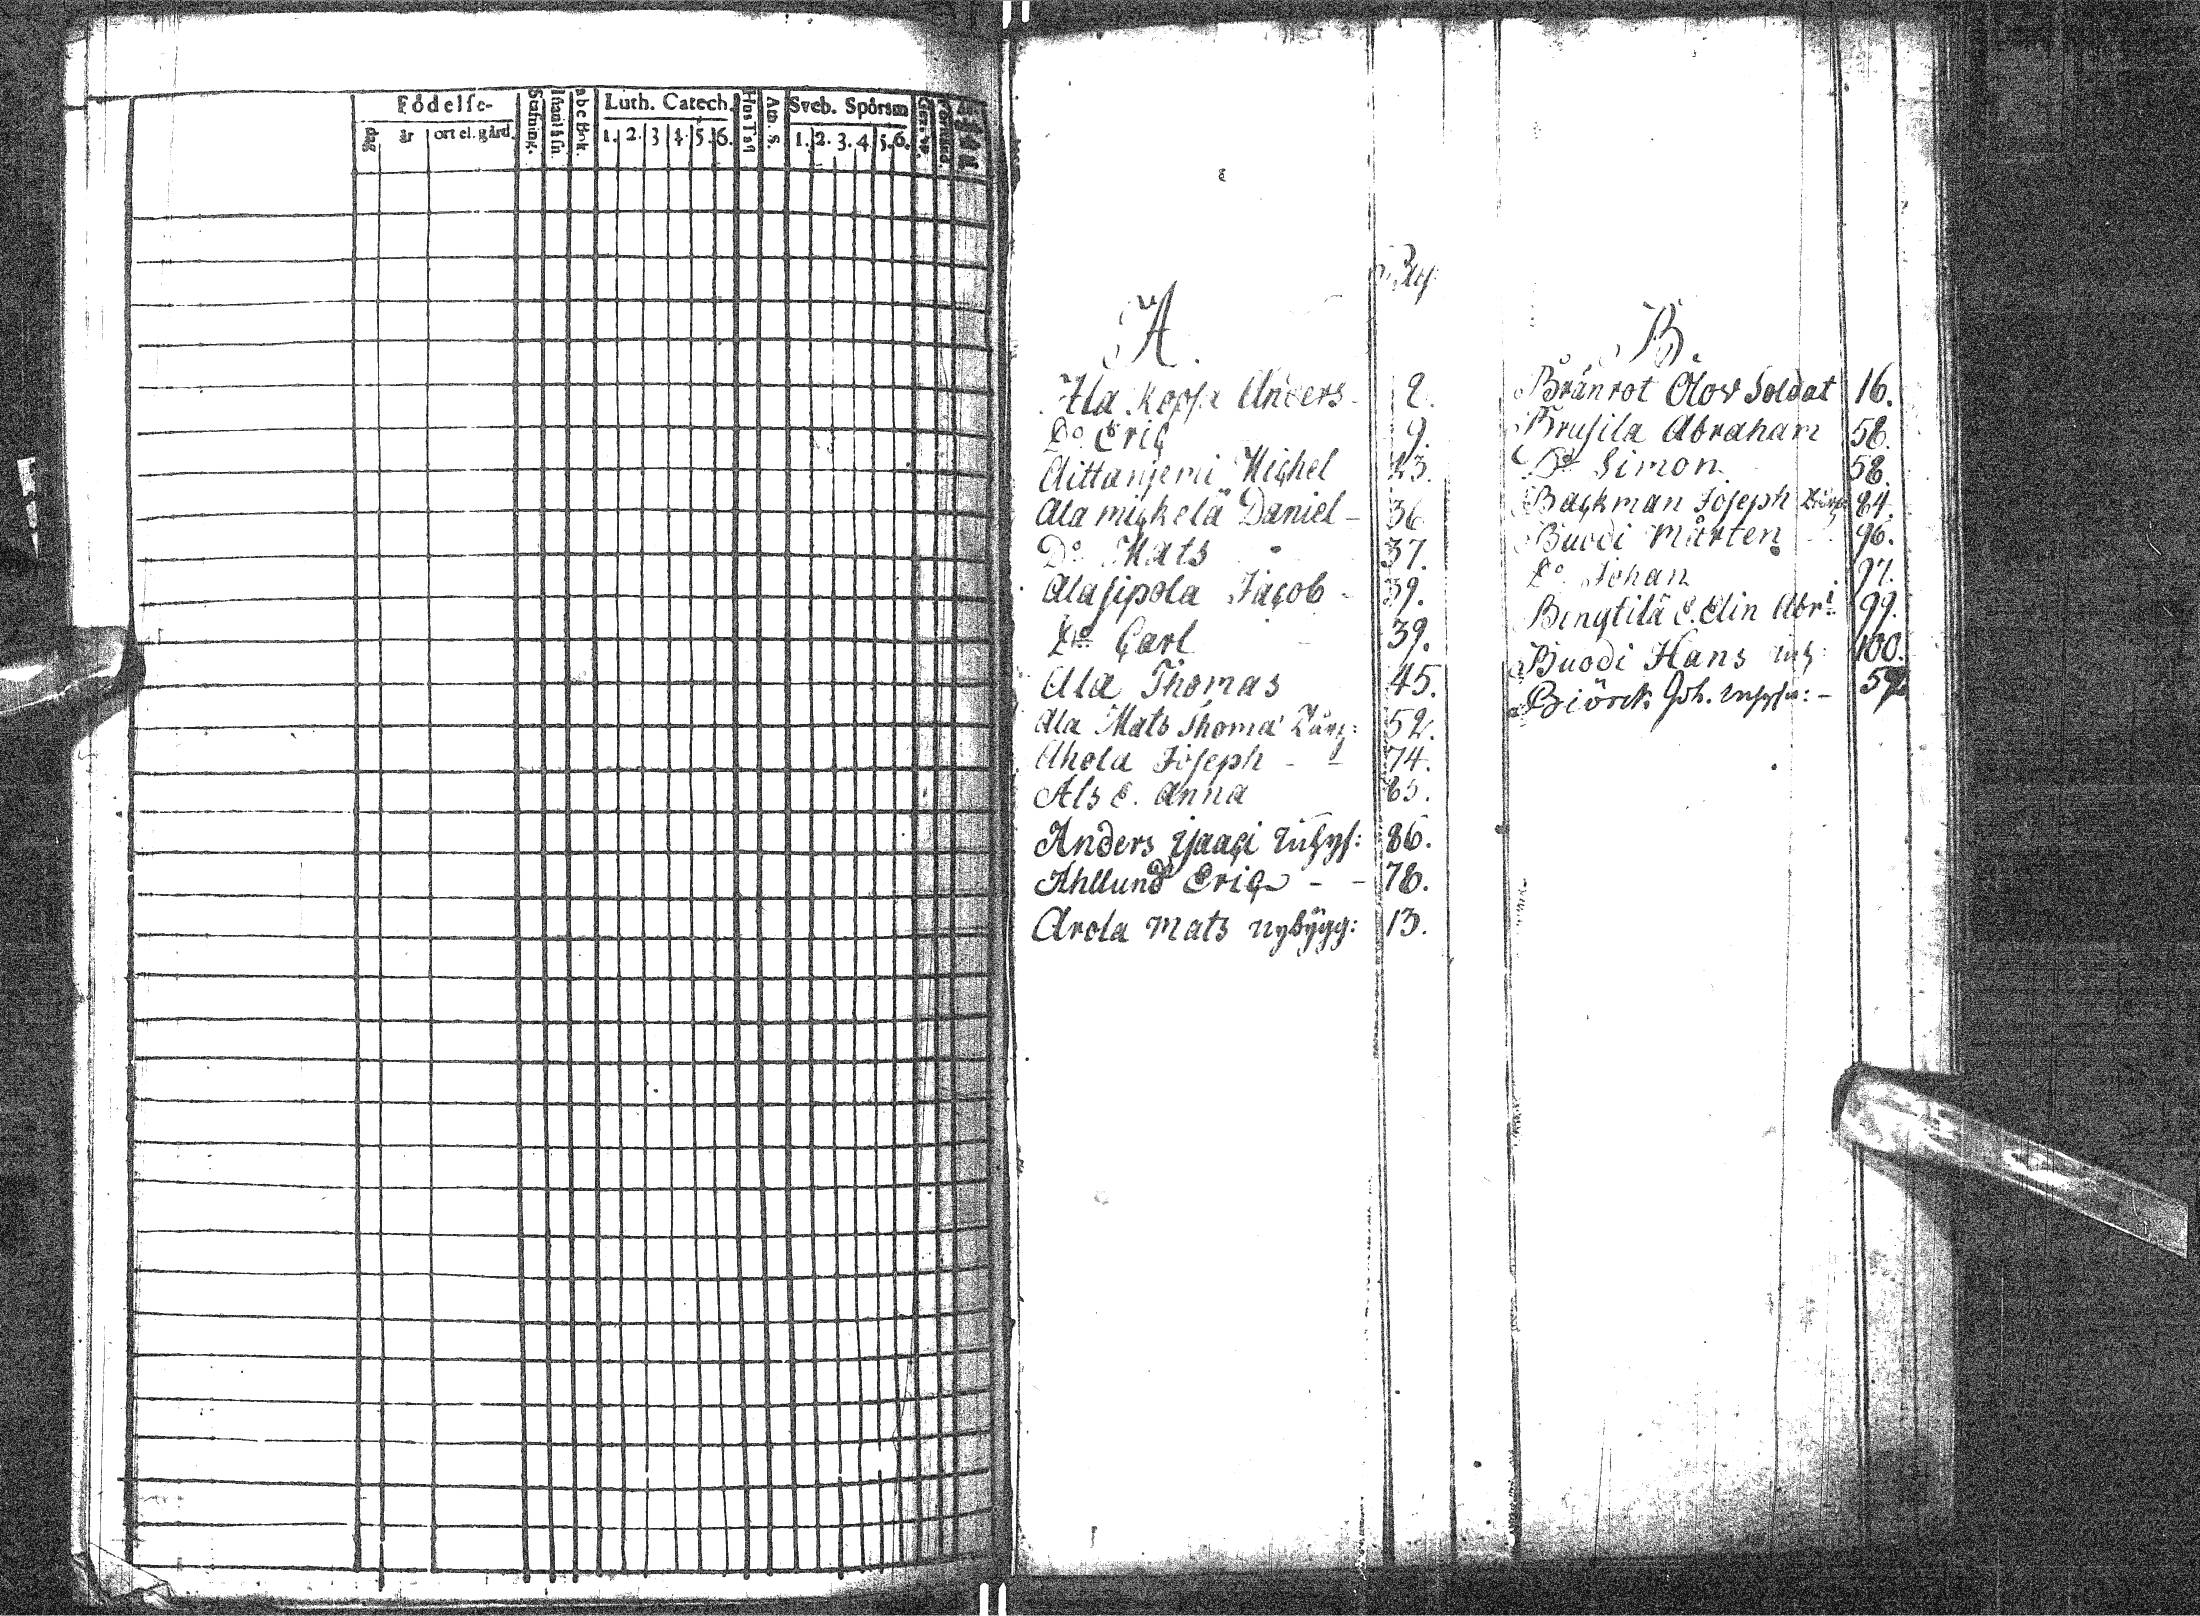 Födelse-
dag
år
ort el. gård.
Stafning.
a b c Bok.
Luth. Catech.
1. 2. 3 4. 5. 6.
Hus Tafl
Ath. S.
Sveb. Spörsm
1. 2. 3. 4. 5. 6.
Pag
A.
Ala Kopsa Anders 2.
Do Eric 9.
Aittaniemi Michel 23.
Ala mickelä Daniel - 36
Do Mats 37.
Alasipola Jacob - 39.
Do Carl 39.
Ala Thomas 45.
Ala Mats Thoma 52.
Ahola Joseph - - 74.
Als E. Anna 85.
Anders Isaaci 86.
Ahllund Eric - - 78.
Arola Mats nybygg: 13.
B.
Bränrot Olov Soldat 16.
Brusila Abraham 58.
Do Simon 58.
Backman Joseph 84.
Buodi Mårten 96.
Do Johan 97.
Bengtilä E. Elin Abr: 99.
Buodi Hans 100.
Biörck Joh. 59